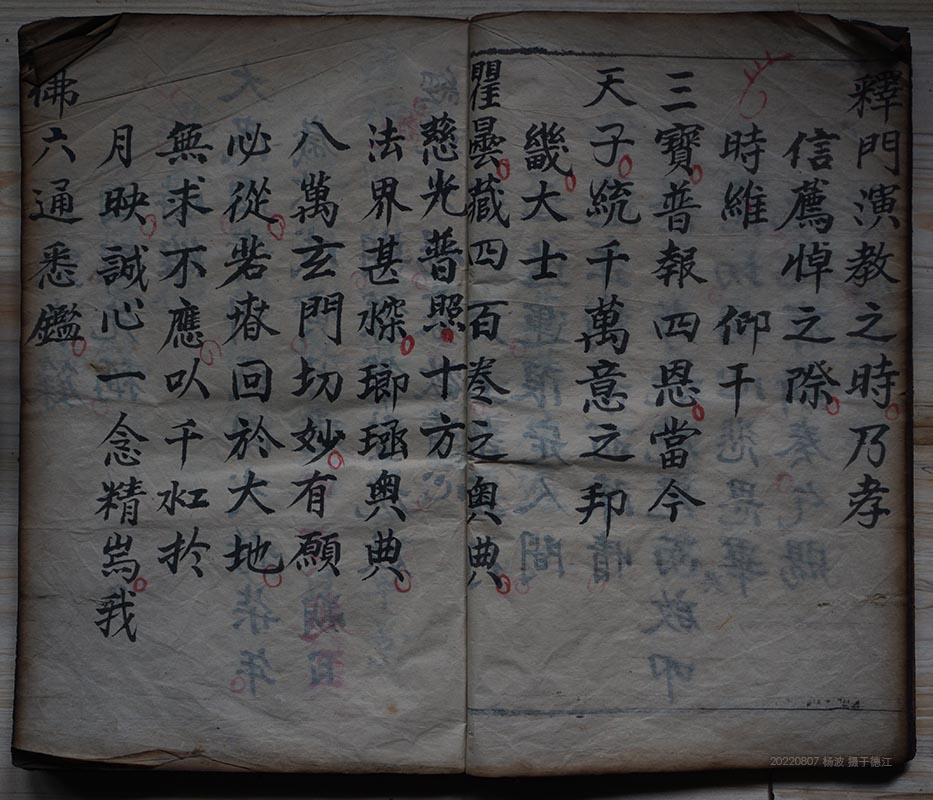 釋門演教之時乃孝
信薦悼之際
時維 仰干
三寶普報四恩當今
天子統千萬意之邦
畿大士
瞿曇藏四百卷之奧典
慈光普照十方
法界甚深瑯函奧典
八萬玄門切妙有願
必從若壻回於大地
無求不應以千江於
月映誠心一念精耑我
佛六通悉鑑
20220807 杨波 摄于德江